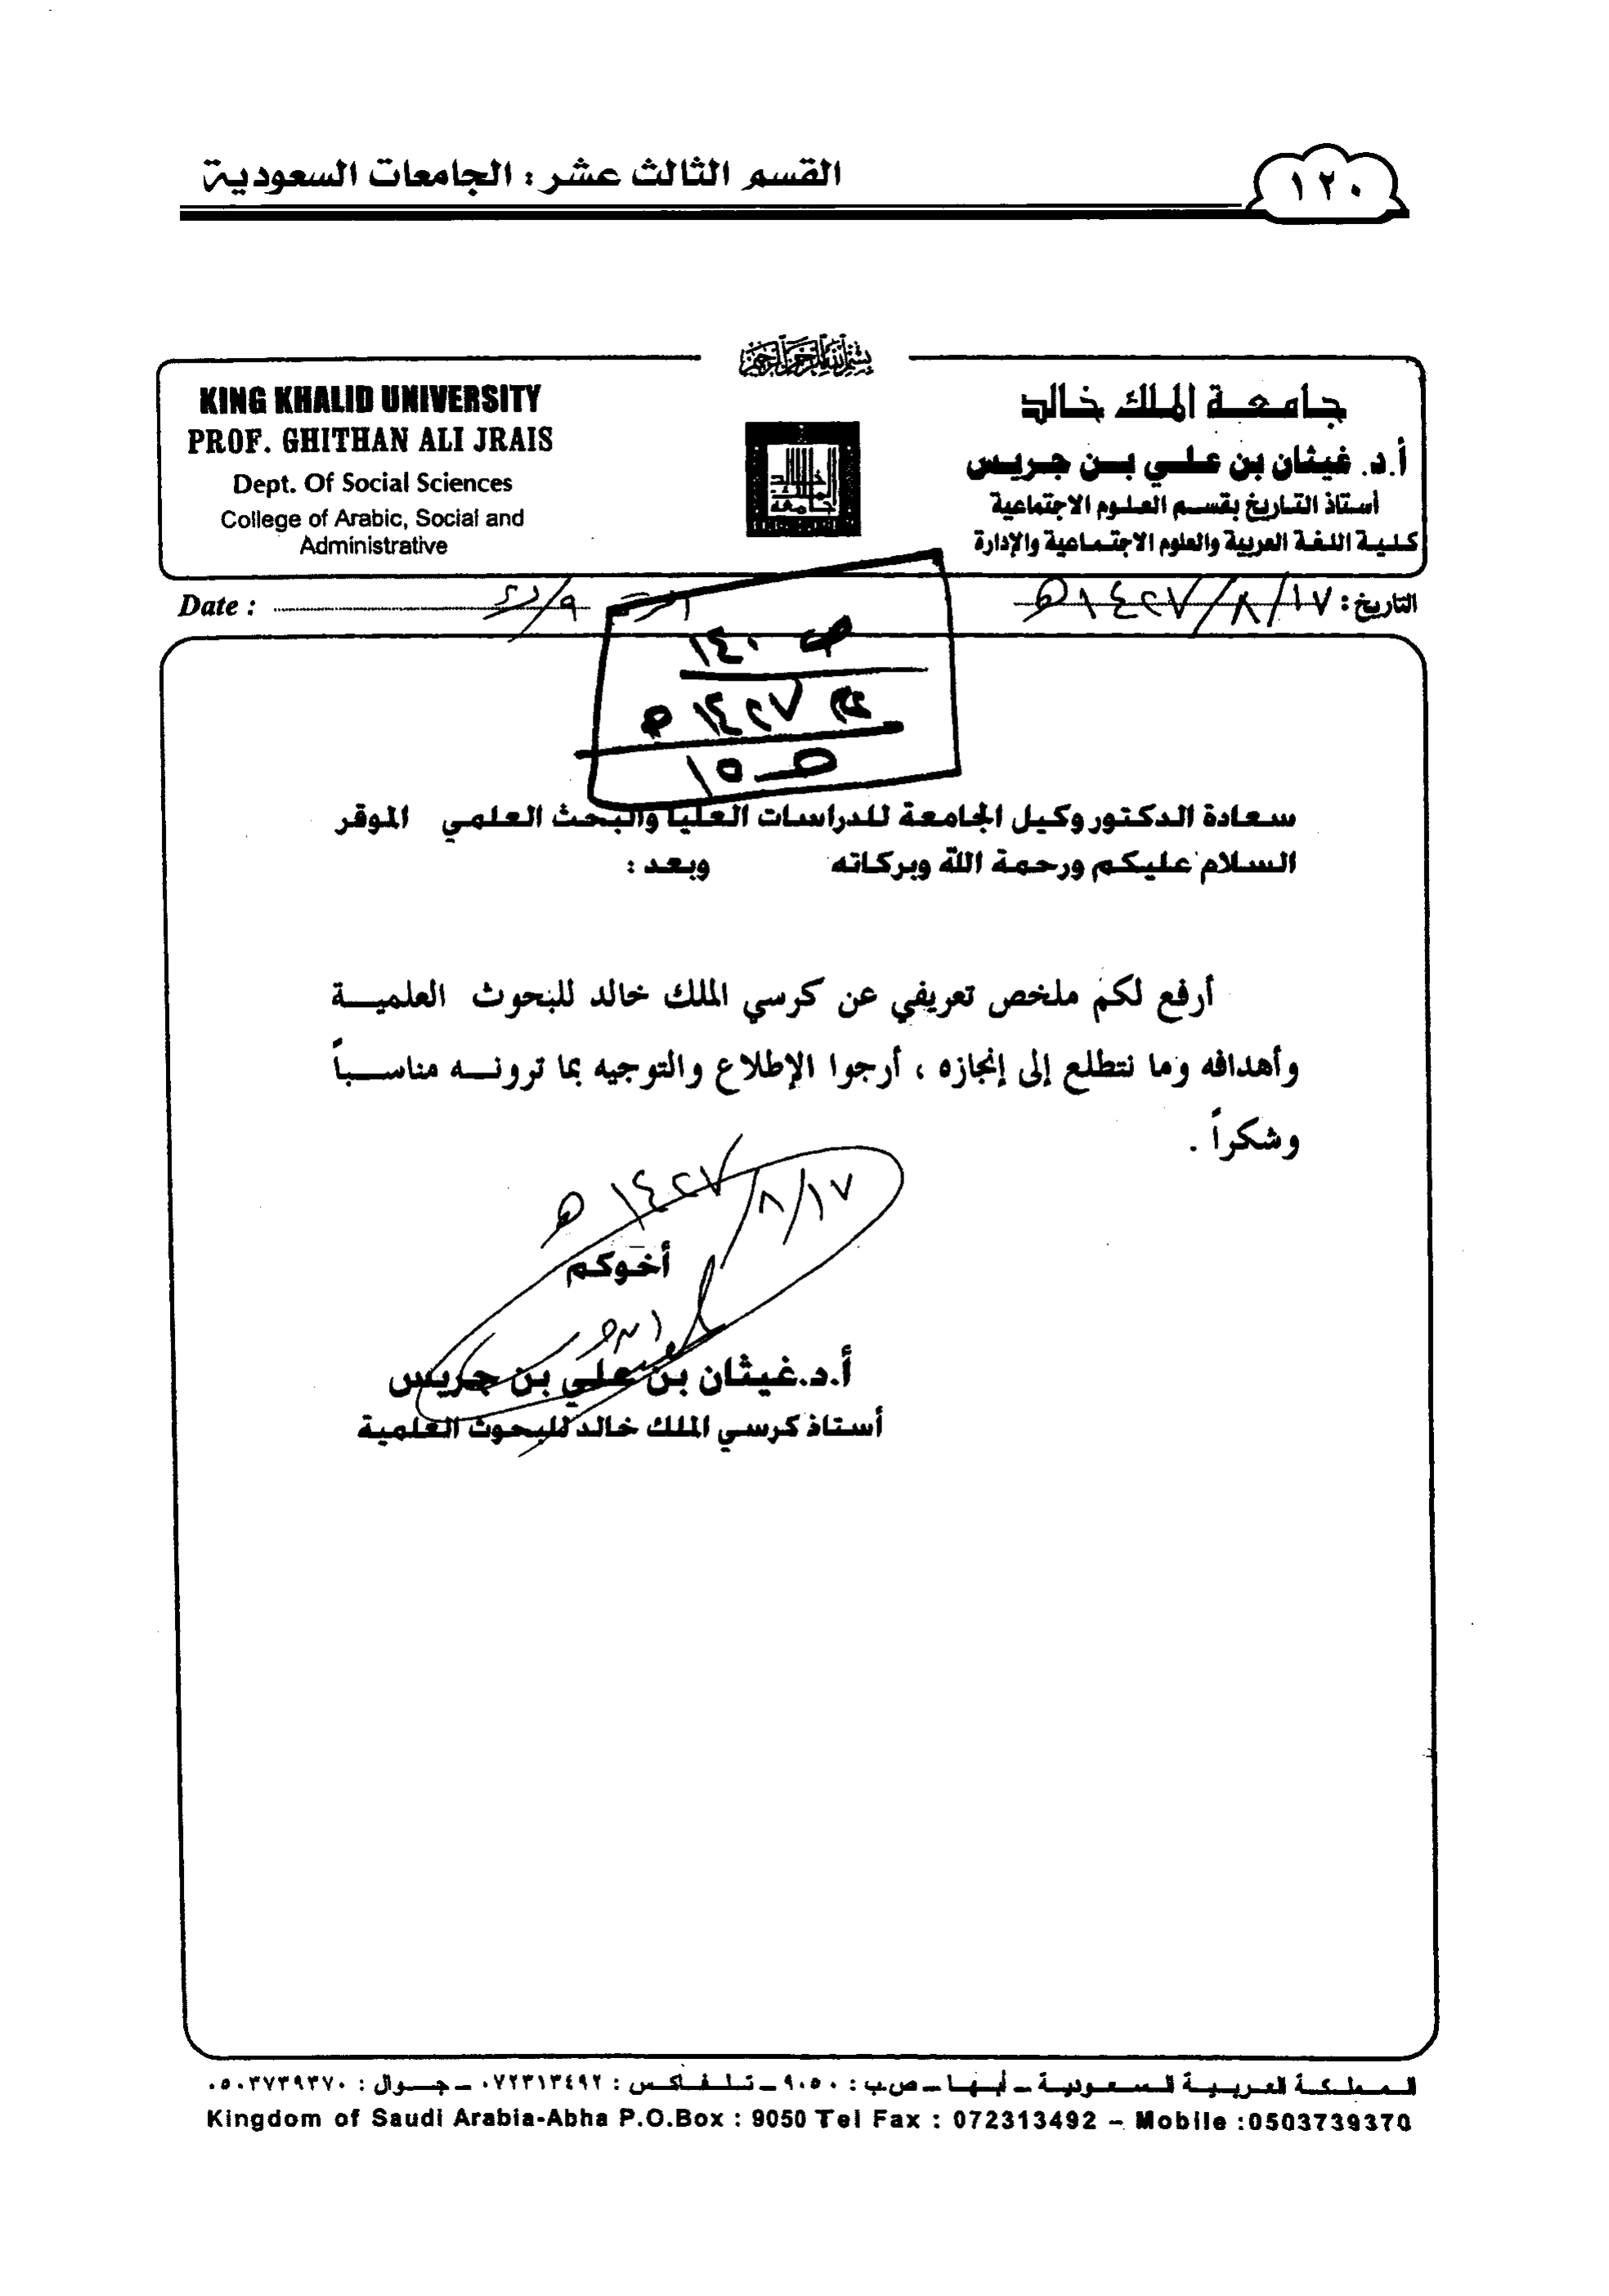 القسم الثالث عشر : الجامعات السعودية
١٢٠
بسم الله الرحمن الرحيم
جامعة الملك خالد
أ.د. غيثان بن علي بن جريس
أستاذ التاريخ بقسم العلوم الاجتماعية
كلية اللغة العربية والعلوم الاجتماعية والإدارة
جامعة الملك خالد
KING KHALID UNIVERSITY
PROF. GHITHAN ALI JRAIS
Dept. Of Social Sciences
College of Arabic, Social and
Administrative
التاريخ : ١٧/٨/١٤٢٧هـ
Date :
١٤٠
١٤٢٧ هـ
سعادة الدكتور وكيل الجامعة للدراسات العليا والبحث العلمي الموقر
السلام عليكم ورحمة الله وبركاته وبعد :
أرفع لكم ملخص تعريفي عن كرسي الملك خالد للبحوث العلمية
وأهدافه وما نتطلع إلى إنجازه ، أرجوا الإطلاع والتوجيه بما ترونه مناسباً
وشكراً .
١٧/٨/١٤٢٧ هـ
أخوكم
أ.د.غيثان بن علي بن جريس
أستاذ كرسي الملك خالد للبحوث العلمية
المملكة العربية السعودية ـ أبها ـ ص.ب : ٩٠٥٠ ـ تلفاكس : ٠٧٢٣١٣٤٩٢ ـ جوال : ٠٥٠٣٧٣٩٣٧٠
Kingdom of Saudi Arabia-Abha P.O.Box : 9050 Tel Fax : 072313492 – Mobile :0503739370